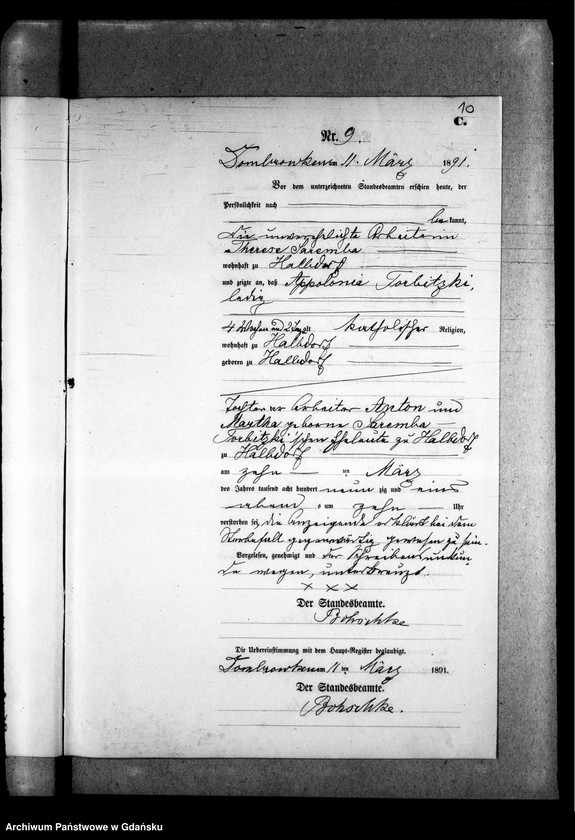 10
C.
Nr. 9.
Dombrowken am 11. März 1891.
Vor dem unterzeichneten Standesbeamten erschien heute, der
Persönlichkeit nach
bekannt,
die unverehelichte Arbeiterin
Therese Saremba
wohnhaft zu Halbdorf
und zeigte an, daß Appolonia Torbitzki,
ledig
4 Wochen und 2 Tag alt katholischer Religion,
wohnhaft zu Halbdorf
geboren zu Halbdorf
Tochter der Arbeiter Anton und
Martha geborne Saremba
Torbitzki'schen Eheleute zu Halbdorf
zu Halbdorf
am zehn ten März
des Jahres tausend acht hundert neun zig und eins
abend s um zehn Uhr
verstorben sei, die Anzeigende erklärt bei dem
Sterbefall gegenwärtig gewesen zu sein.
Vorgelesen, genehmigt und der Schreibensunkun
de wegen, unterkreuzt.
× × ×
Der Standesbeamte.
Bohschke
Die Uebereinstimmung mit dem Haupt-Register beglaubigt.
Dombrowken am 11 ten März 1891.
Der Standesbeamte.
Bohschke.
Archiwum Państwowe w Gdańsku